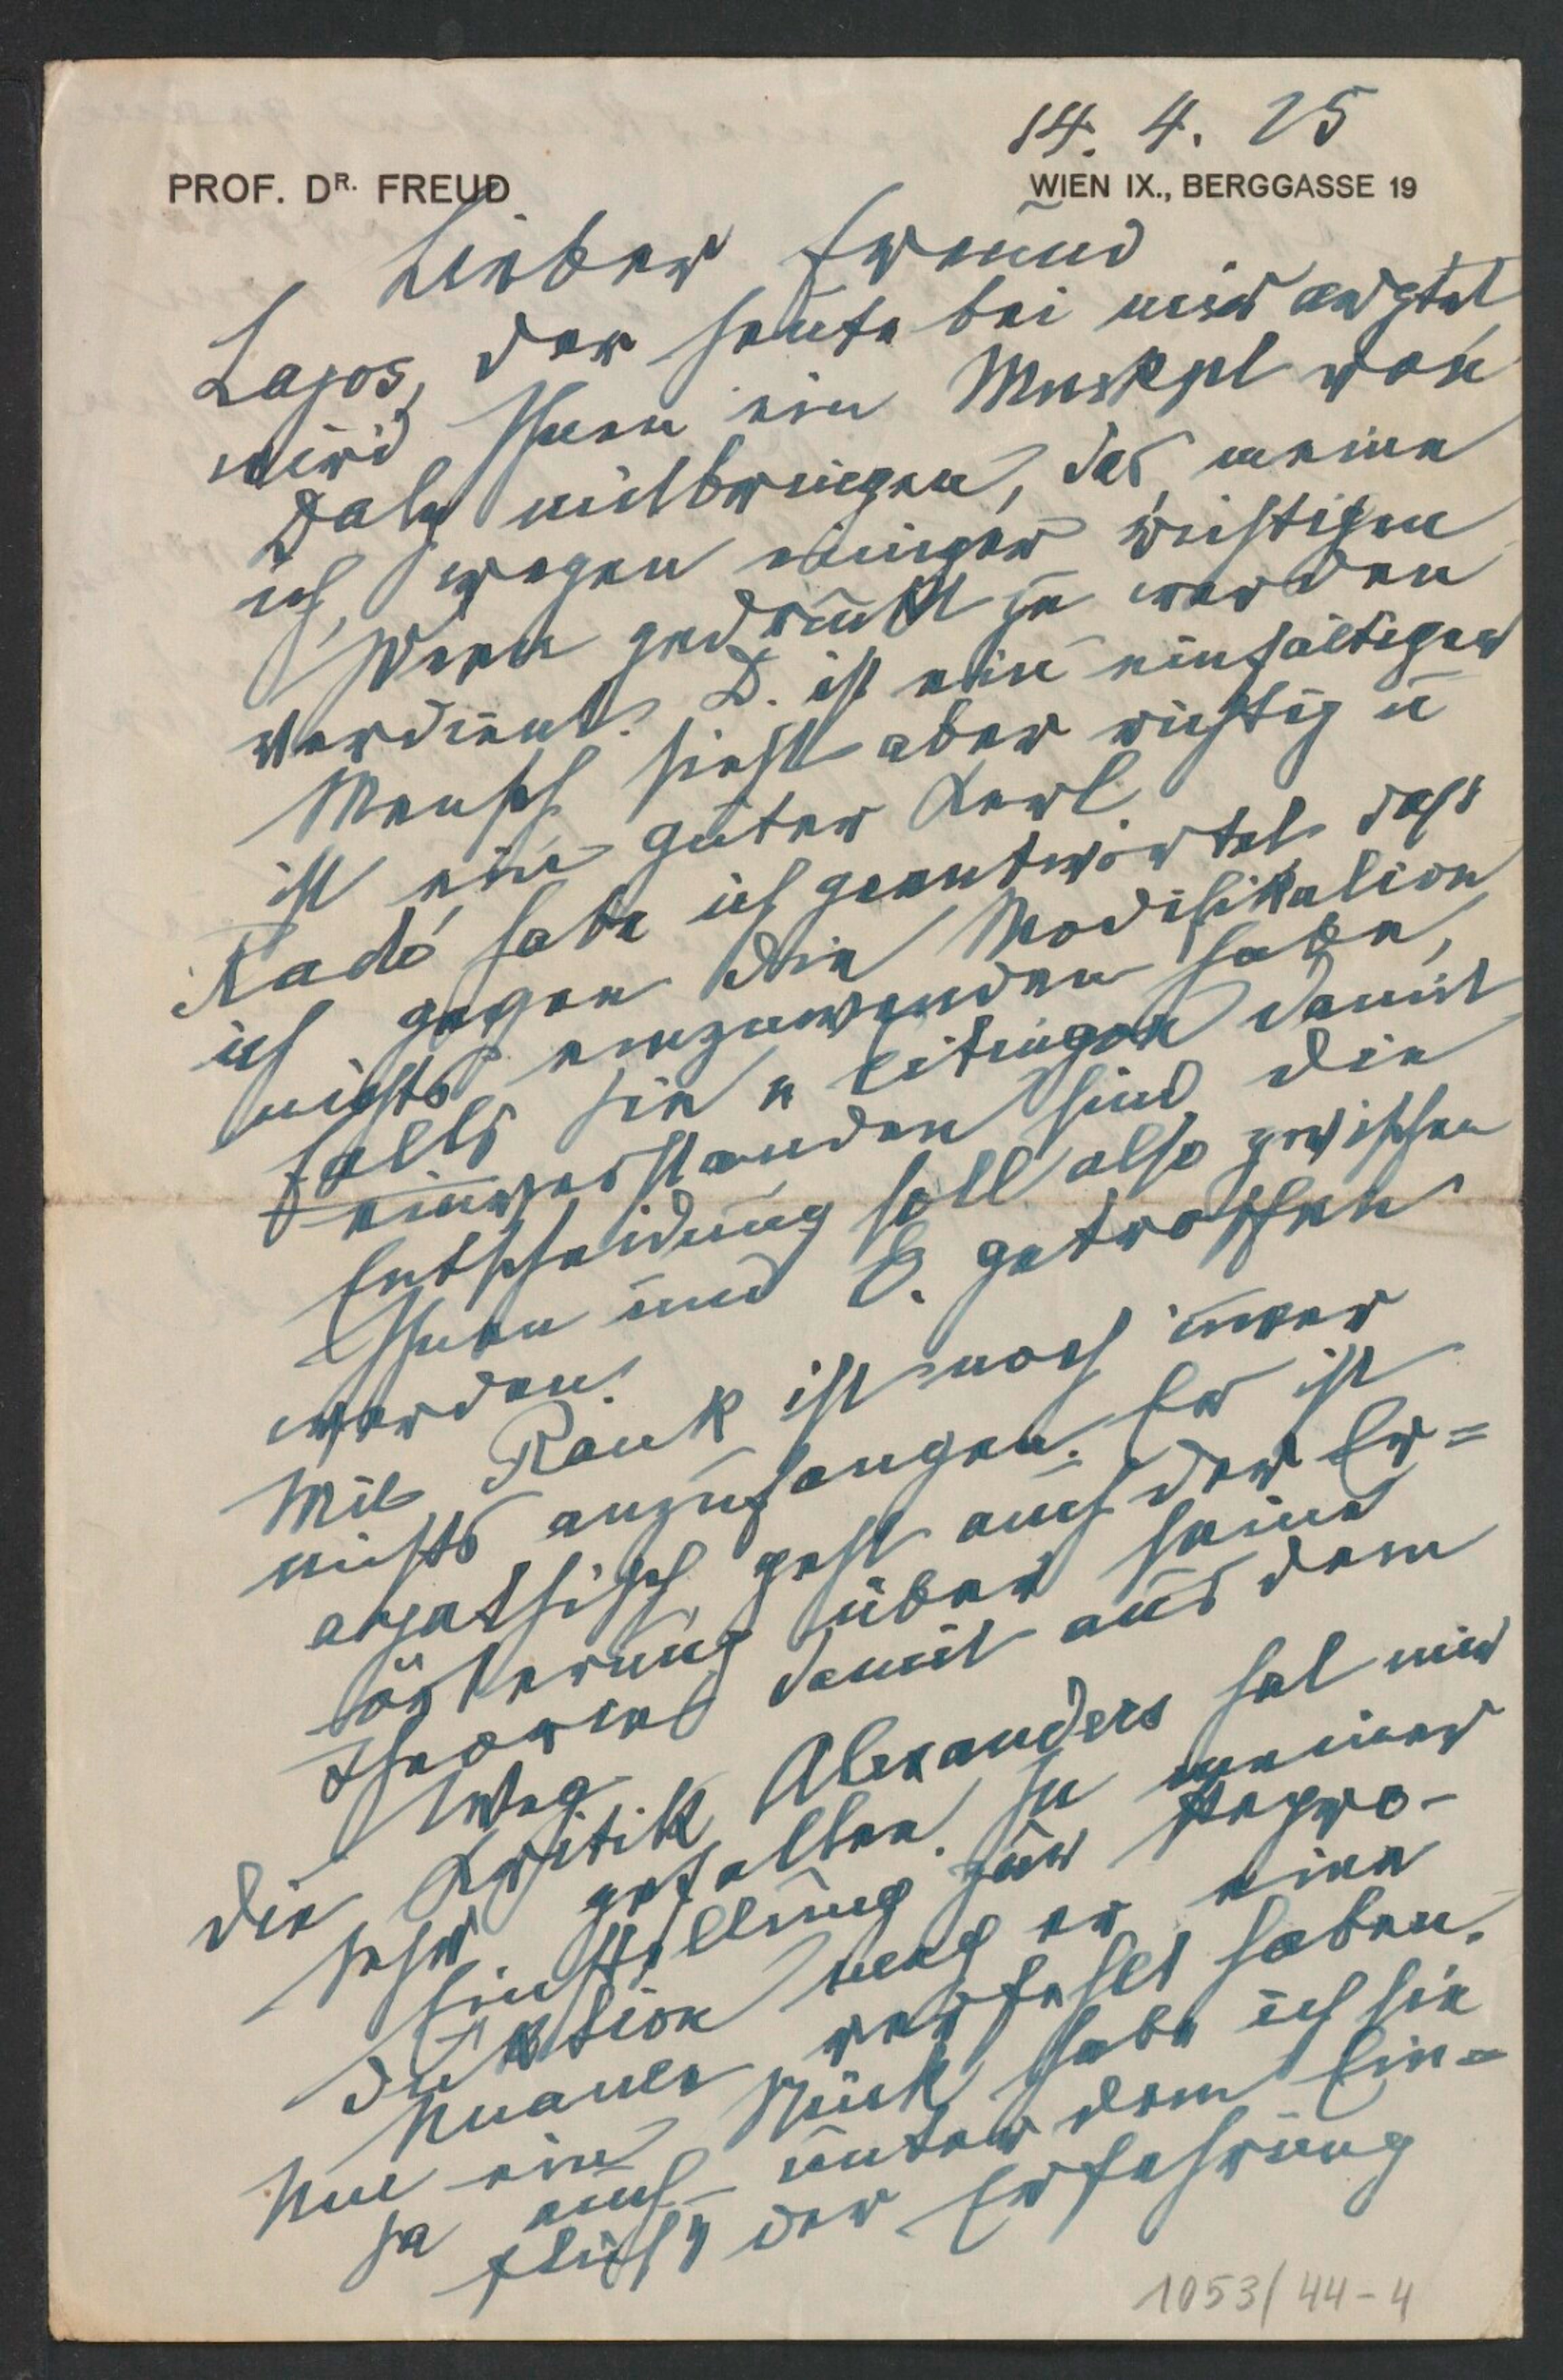 14. 4. 25
PROF. DR. FREUD
WIEN IX., BERGGASSE 19
Lieber Freund
Lajos, der heute bei mir
wird Ihnen ein Mnskpt von
Daly mitbringen, das, meine
ich, wegen einiger richtigen
Ideen gedruckt zu werden
verdient. D. ist ein einfältiger
Mensch sieht aber richtig u
ist ein guter Kerl.
Radó habe ich geantwortet daß
ich gegen die Modifikation
nichts einzuwenden habe,
falls Sie u Eitingon damit
einverstanden sind die
Entscheidung soll also zwischen
Ihnen und E. getroffen
werden.
Mit Rank ist noch immer
nichts anzufangen. Er ist
apathisch, geht auch der Er=
örterung über seine
Theorie damit aus dem
Weg.
Die Kritik Alexanders hat mir
sehr gefallen. In meiner
Einstellung zur Repro-
duktion mag er eine
Nuance verfehlt haben.
Nur ein Stück habe ich sie
ja auch unter dem Ein=
fluß der Erfahrung
1053/44-4